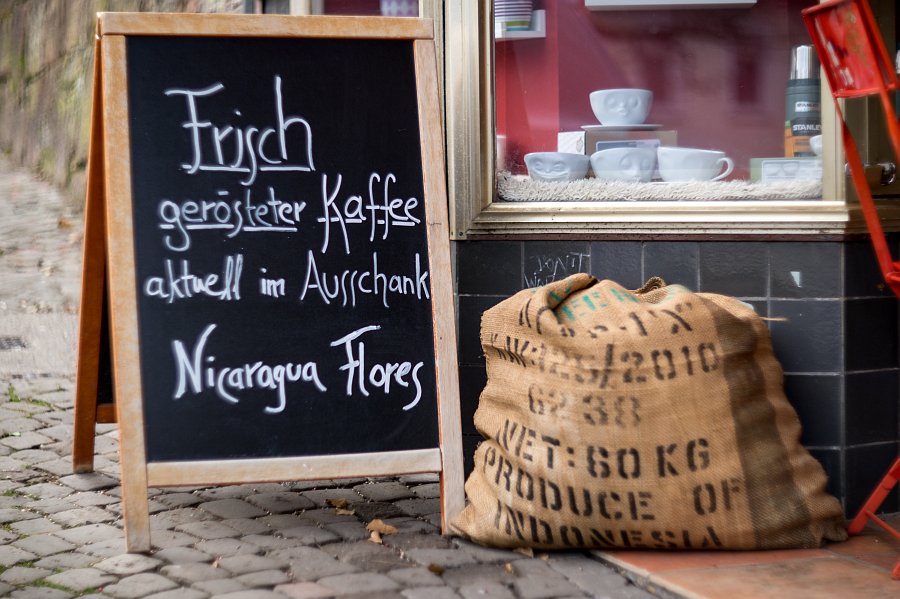 Frisch
gerösteter Kaffee
aktuell im Ausschank
Nicaragua Flores
6238
NET: 60 KG
PRODUCE OF
INDONESIA
STANLEY